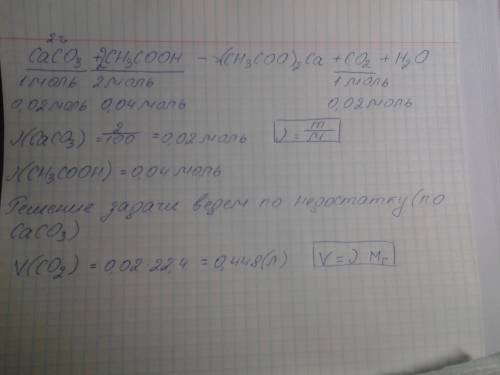 2г
CaCO₃ + 2CH₃COOH → (CH₃COO)₂Ca + CO₂ + H₂O
1 моль 2 моль 1 моль
0,02 моль 0,04 моль 0,02 моль
ν(CaCO₃) = 2/100 = 0,02 моль ν = m/M
ν(CH₃COOH) = 0,04 моль
Решение задачи ведем по недостатку (по
CaCO₃)
V(CO₂) = 0,02·22,4 = 0,448 (л) V = ν·Mr